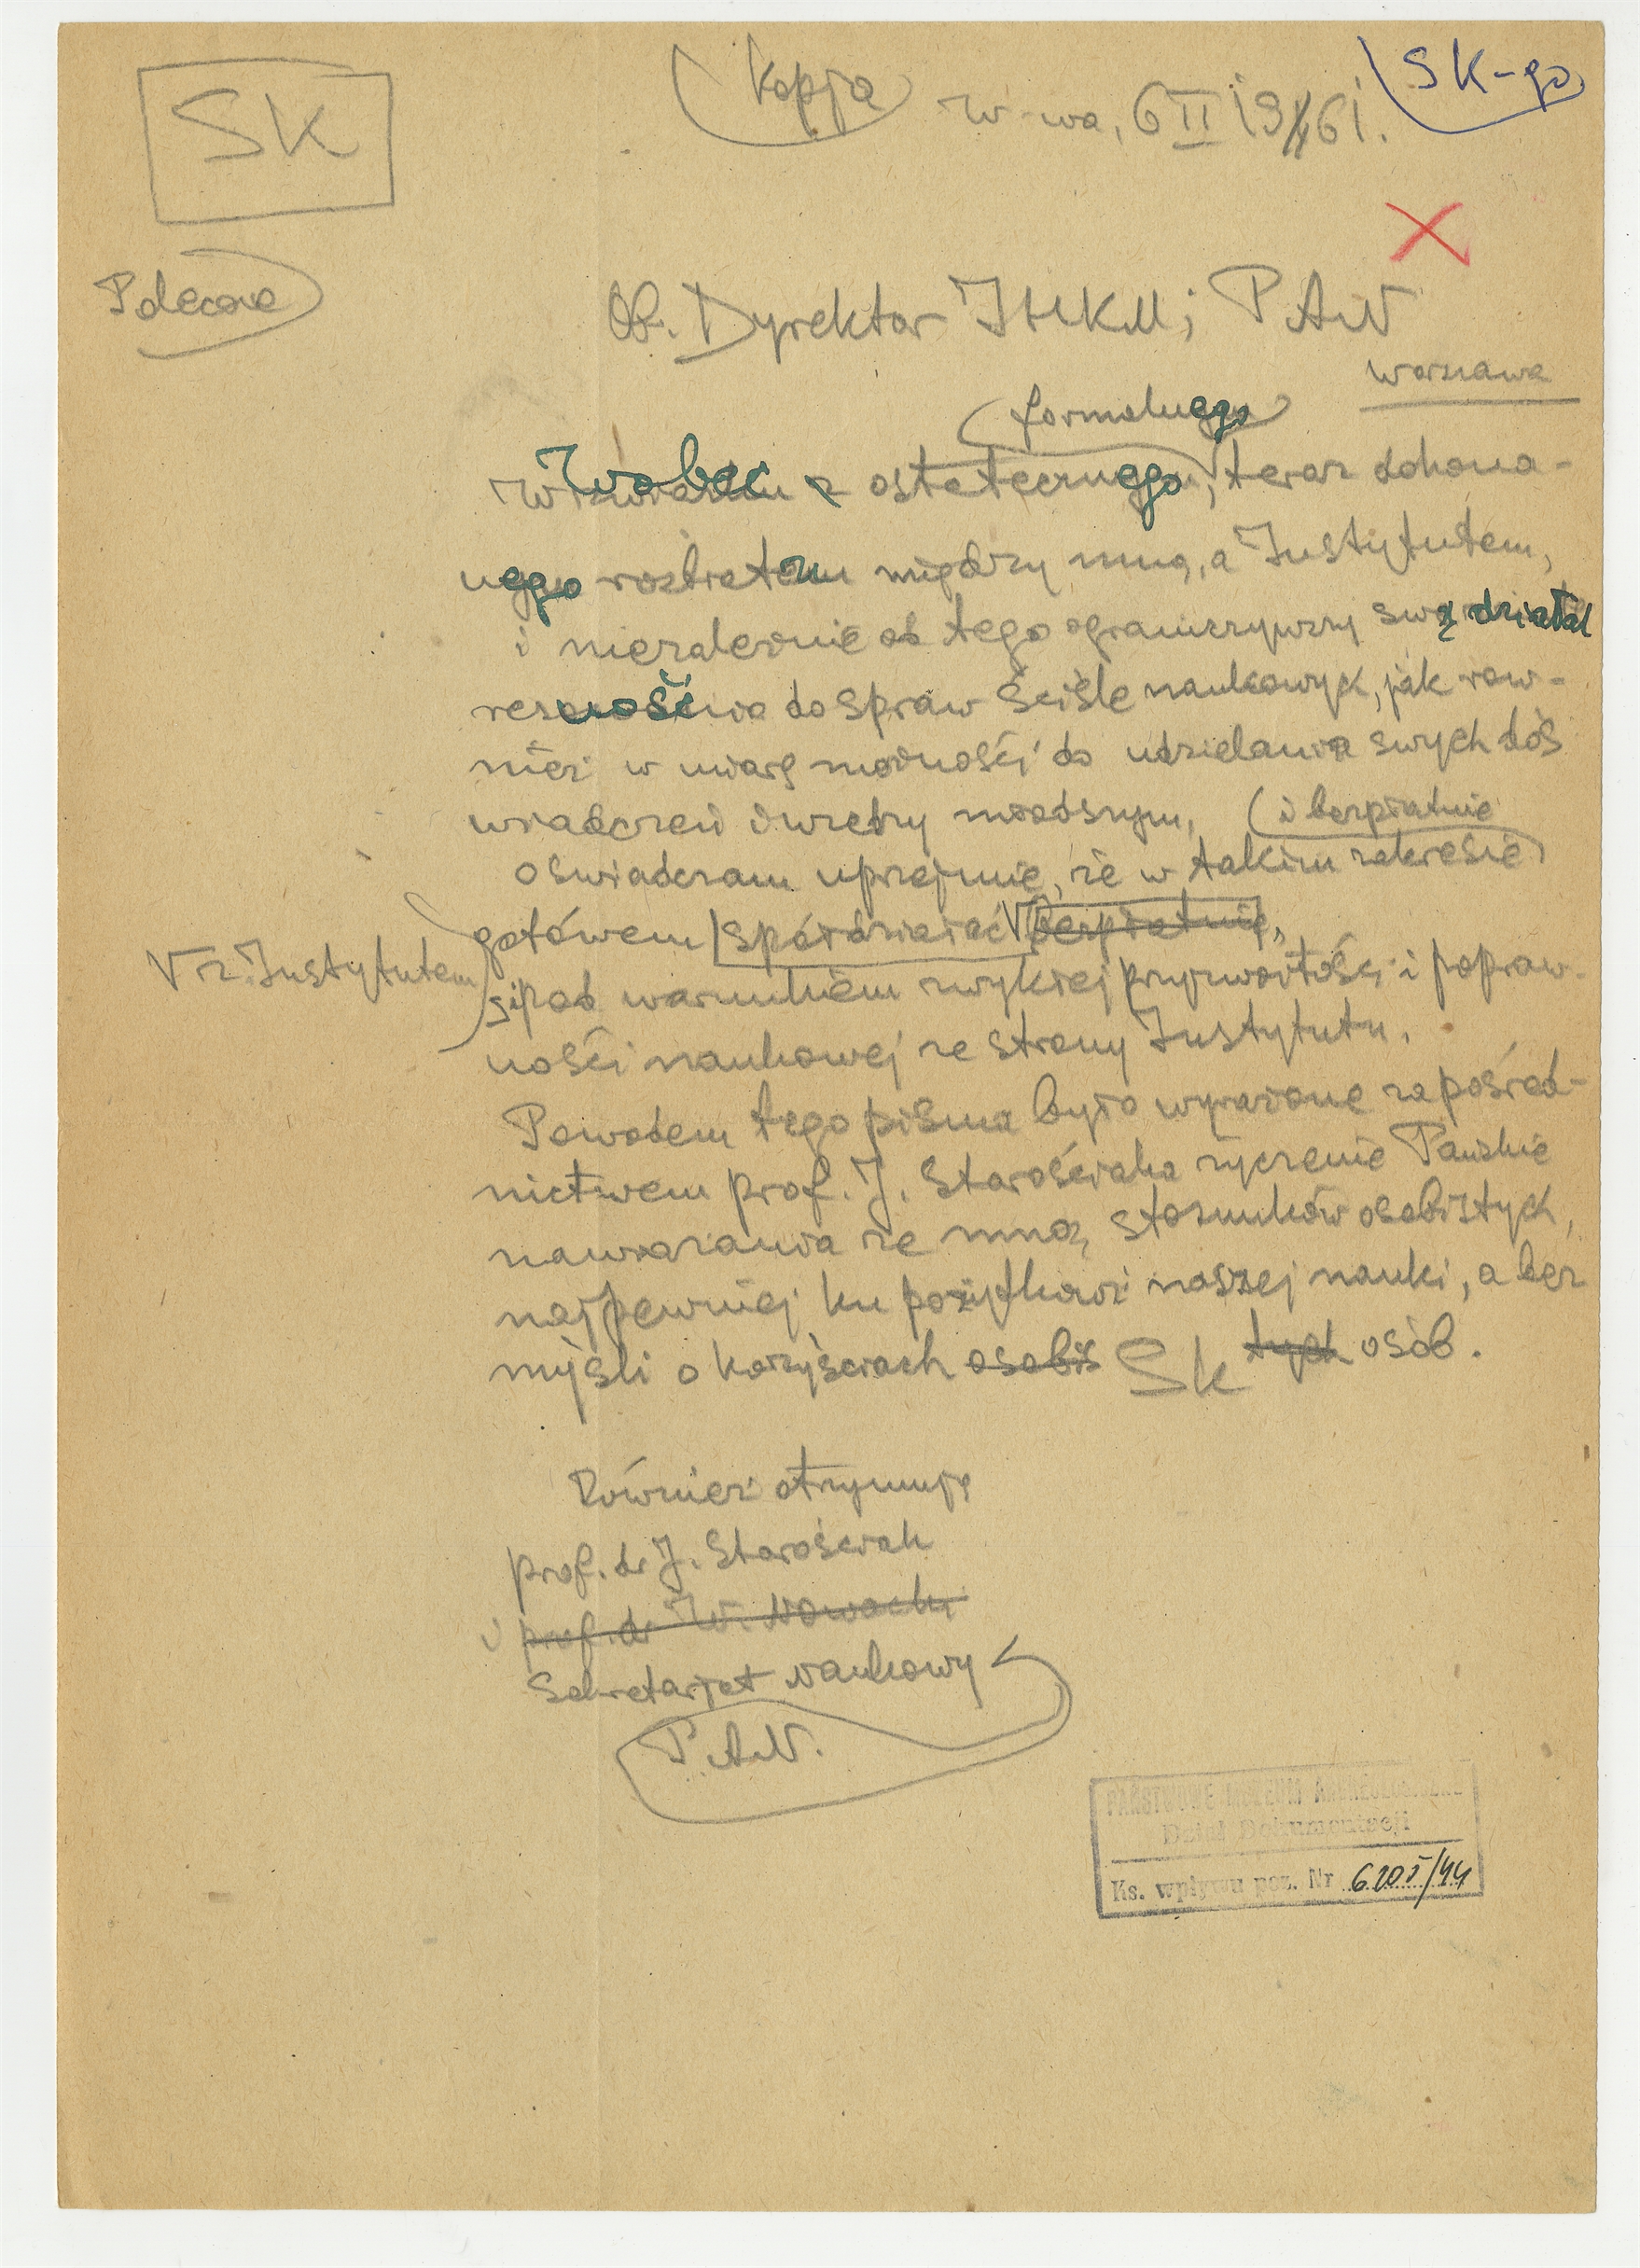 SK
Kopja
W-wa, 6 II 1961.
SK-go
Polecone
Ob. Dyrektor IHKM; PAN
Warszawa
formalnego
Wobec ostatecznego, teraz dokona-
nego rozbratu między mną, a Instytutem,
i niezależnie od tego ograniczywszy swą działal
ność do spraw ściśle naukowych, jak rów-
nież w miarę możności do udzielania swych doś
wiadczeń i wiedzy młodszym,
(i bezpłatnie
oświadczam uprzejmie, że w takim zakresie
gotówem spółdziałać bezpłatnie,
V z Instytutem
i pod warunkiem zwykłej przyzwoitości i popraw-
ności naukowej ze strony Instytutu.
Powodem tego pisma było wyrażone za pośred-
nictwem prof. J. Starościaka życzenie Pańskie
nawiązania ze mną stosunków osobistych,
najpewniej ku pożytkowi naszej nauki, a bez
myśli o korzyściach osobis SK tych osób.
Również otrzymują
prof. dr J. Starościak
prof. dr W. Nowacki
Sekretarjat Naukowy
P.A.N.
PAŃSTWOWE MUZEUM ARCHEOLOGICZNE
Dział Dokumentacji
Ks. wpływu poz. Nr 6205/44